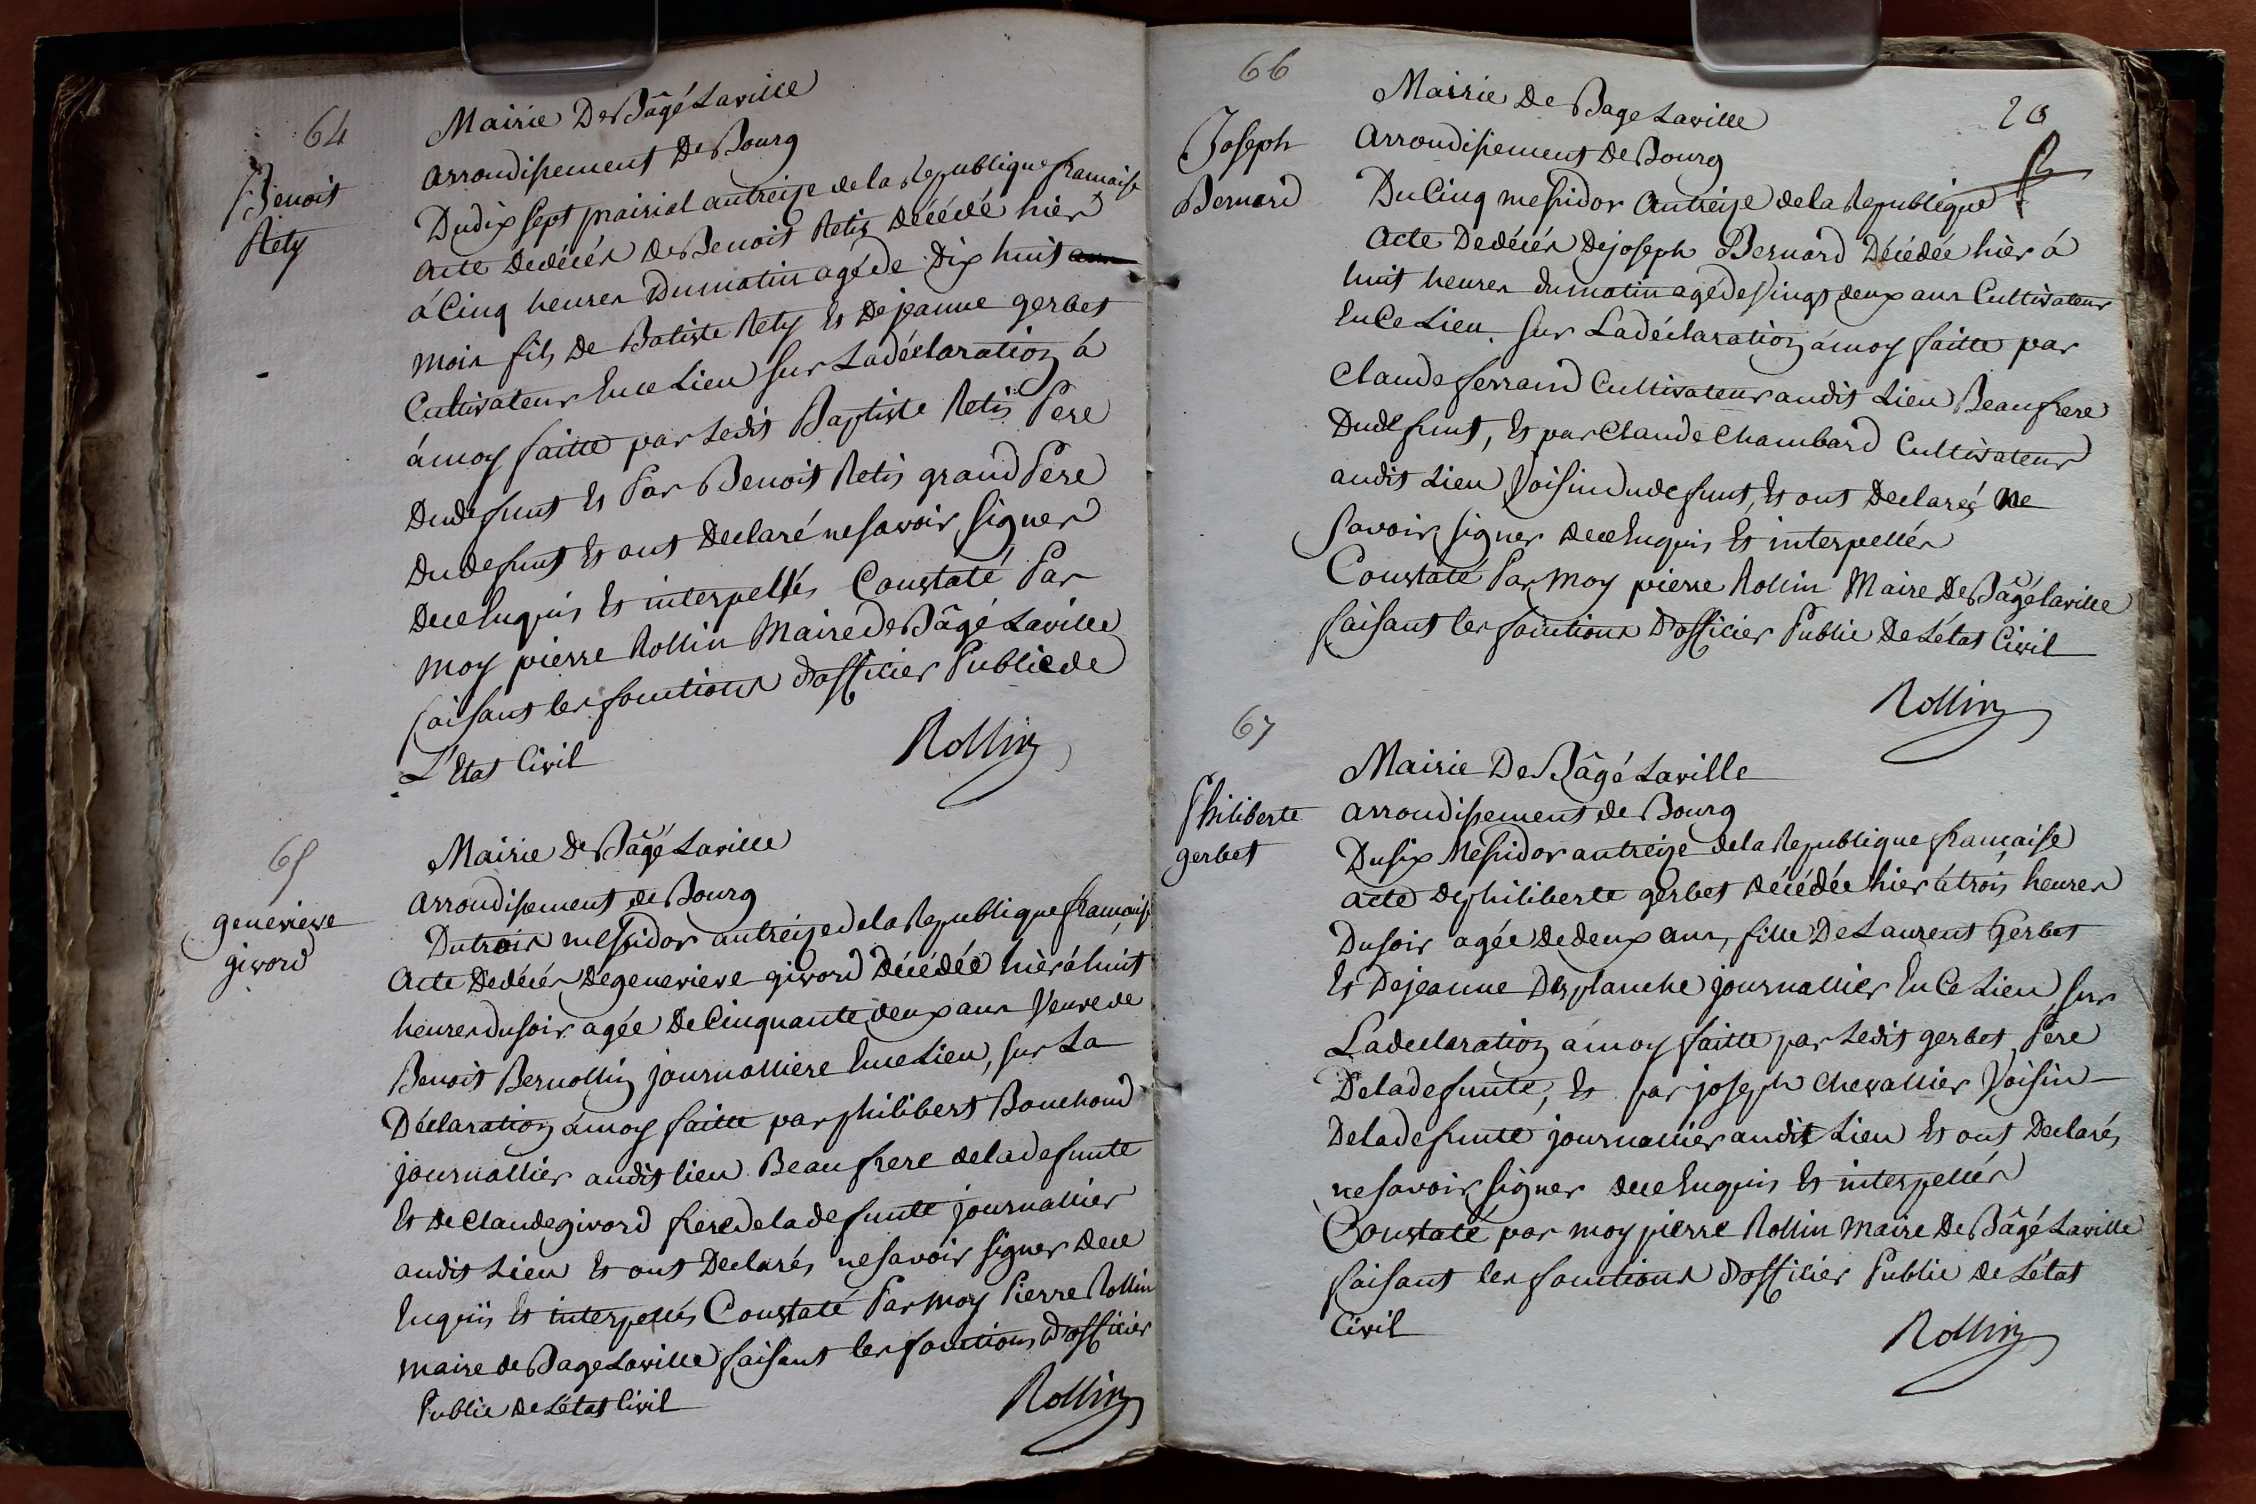 64
Benoit
Rety
Mairie De Bâgé Laville
arrondissement De Bourg
Du dix sept prairial an treize de la Republique francaise
acte de décés de Benoit Retis Décédé hièr
á Cinq heures Du matin agé de Dix huit
mois fils De Batiste Rety Et De jeanne gerbet
Cultivateur En ce Lieu sur La déclaration á
á moy faitte par Ledit Baptiste Retis Pere
Du defunt Et Par Benoit Retis grand Pere
Du defunt Et ont Declaré ne savoir signer
De ce Enquis Et interpellés Constaté Par
moy pierre Rollin Maire De Bâgé Laville
faisant les fonctions d'officier Public de
L'Etat Civil
Rollin
65
genevieve
givord
Mairie De Bâgé Laville
arrondissement de Bourg
Du trois messidor an treize de la Republique francaise
Acte De décés De genevieve givord Décédée hièr á huit
heures du soir agée De Cinquante deux ans Veuve de
Benoit Bernollin journalliere En ce Lieu, sur La
Déclaration á moy faitte par philibert Bouchoud
journallier audit lieu Beaufrere de la defunte
Et De Claude givord frere de la defunte journallier
audit Lieu Et ont Declarés ne savoir signer De ce
Enquis Et interpellés Constaté Par moy Pierre Rollin
maire de Bage Laville faisant les fonctions D'officier
Public De L'état Civil
Rollin
66
20
Joseph
Bernard
Mairie De Bage Laville
Arrondissement De Bourg
Du Cinq messidor an treize de la Republique
Acte De décés De joseph Bernard Décédée hièr á
huit heures du matin agé de Vingt deux ans Cultivateur
En Ce Lieu. sur La déclaration á moy faitte par
Claude ferrand Cultivateur audit Lieu Beaufrere
Du defunt, Et par Claude Chambard Cultivateur
audit Lieu Voisin du defunt, Et ont Declarés ne
savoir signer De ce Enquis Et interpellés
Constaté Par moy pierre Rollin Maire De Bâgé laville
faisant les fonctions D'officier Public De L'état Civil
Rollin
67
Philiberte
gerbet
Mairie De Bâgé Laville
arrondissement de Bourg
Du six Messidor an treize de la Republique francaise
acte De philiberte gerbet Décédée hier á trois heures
Du soir agée De deux ans, fille De Laurent Gerbet
Et De jeanne Desplanche journallier En Ce Lieu sur
La declaration á moy faitte par Ledit gerbet Pere
De la defunte, Et par joseph Chevallier Voisin
De la defunte journallier audit Lieu Et ont Declarés
ne savoir signer De ce Enquis Et interpellés
Constaté par moy pierre Rollin Maire De Bâgé Laville
faisant les fonctions D'officier Public De L'état
Civil
Rollin